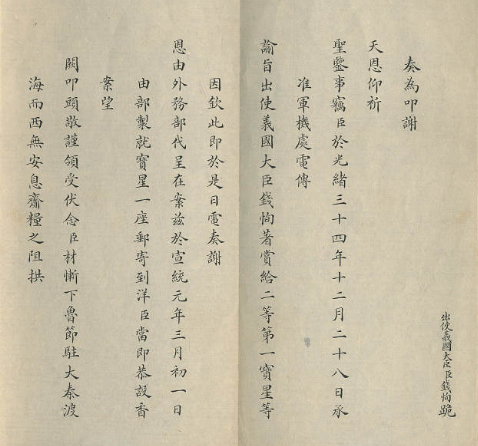 出使義國大臣臣錢恂跪
奏為叩謝
天恩仰祈
聖鑒事竊臣於光緒三十四年十二月二十八日承
准軍機處電傳
諭旨出使義國大臣錢恂著賞給二等第一寶星等
因欽此即於是日電奏謝
恩由外務部代呈在案茲於宣統元年三月初一日
由部製就寶星一座郵寄到洋臣當即恭設香
案望
闕叩頭敬謹領受伏念臣材慚下魯節駐大秦渡
海而西無安息齎糧之阻拱